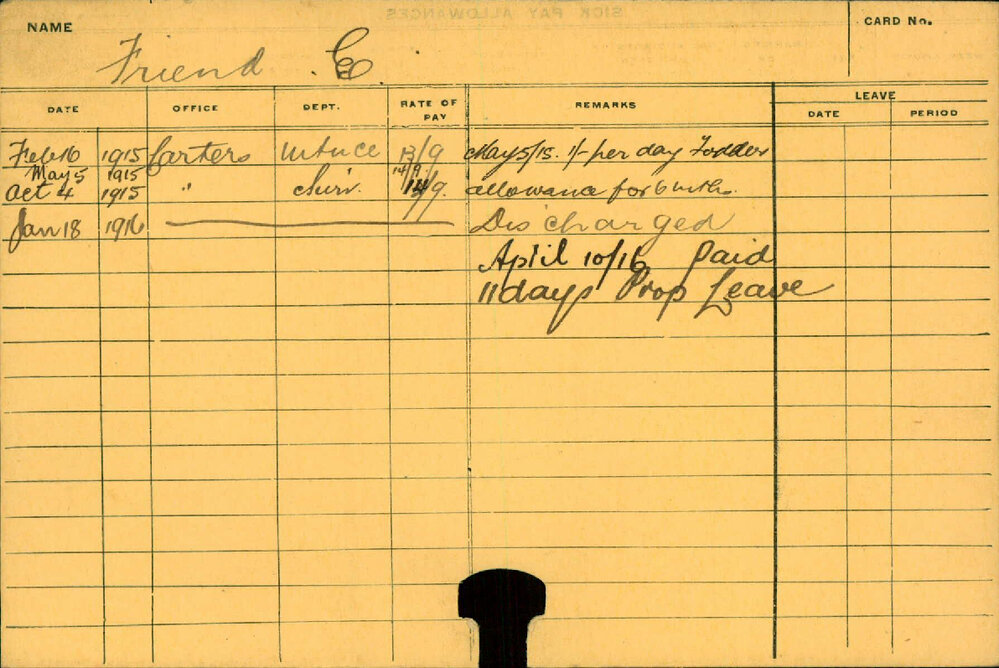 SICK PAY ALLOWANCES
NAME Friend E. CARD No.
DATE OFFICE DEPT. RATE OF PAY REMARKS LEAVE
DATE PERIOD
Feb 16 1915 Carters Mtnce 13/9 May 5/15. 1/- per day Fodder
May 5 1915 14/9
Oct 4 1915 " 14/9. allowance for 6 mths.
Jan 18 1916 Discharged
April 10/16 Paid
11 days Prop Leave